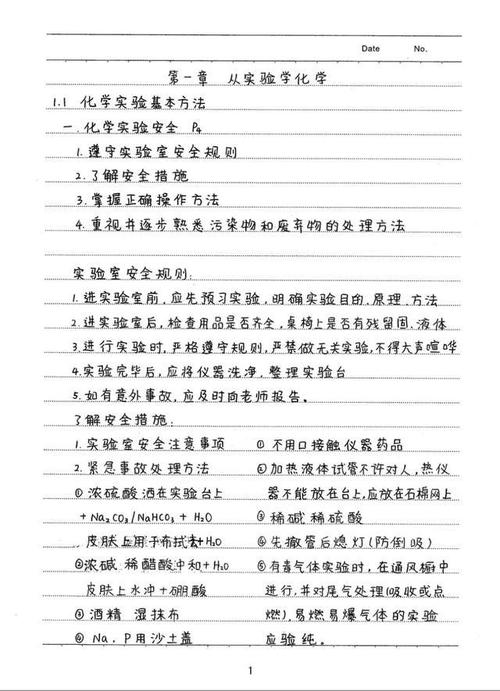 Date No.
第一章 从实验学化学
1.1 化学实验基本方法
一.化学实验安全 P4
1.遵守实验室安全规则
2.了解安全措施
3.掌握正确操作方法
4.重视并逐步熟悉污染物和废弃物的处理方法
实验室安全规则:
1.进实验室前,应先预习实验,明确实验目的、原理、方法
2.进实验室后,检查用品是否齐全,桌椅上是否有残留固、液体
3.进行实验时,严格遵守规则,严禁做无关实验,不得大声喧哗
4.实验完毕后,应将仪器洗净、整理实验台
5.如有意外事故,应及时向老师报告。
了解安全措施:
1.实验室安全注意事项
2.紧急事故处理方法
①浓硫酸洒在实验台上
+Na2CO3/NaHCO3+H2O
皮肤上用干布拭去+H2O
②浓碱 稀醋酸冲和+H2O
皮肤上水冲+硼酸
③酒精 湿抹布
④Na、P用沙土盖
①不用口接触仪器药品
②加热液体试管不许对人,热仪
器不能放在台上,应放在石棉网上
③稀碱 稀硫酸
④先撤管后熄灯(防倒吸)
⑤有毒气体实验时,在通风橱中
进行,并对尾气处理(吸收或点
燃),易燃易爆气体的实验
应验纯。
1